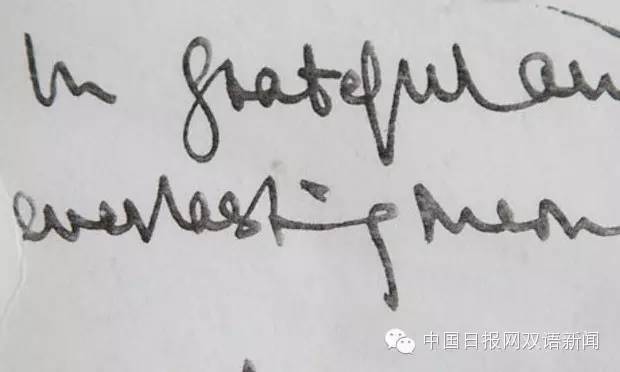 In grateful an
everlasting mem
中国日报网双语新闻